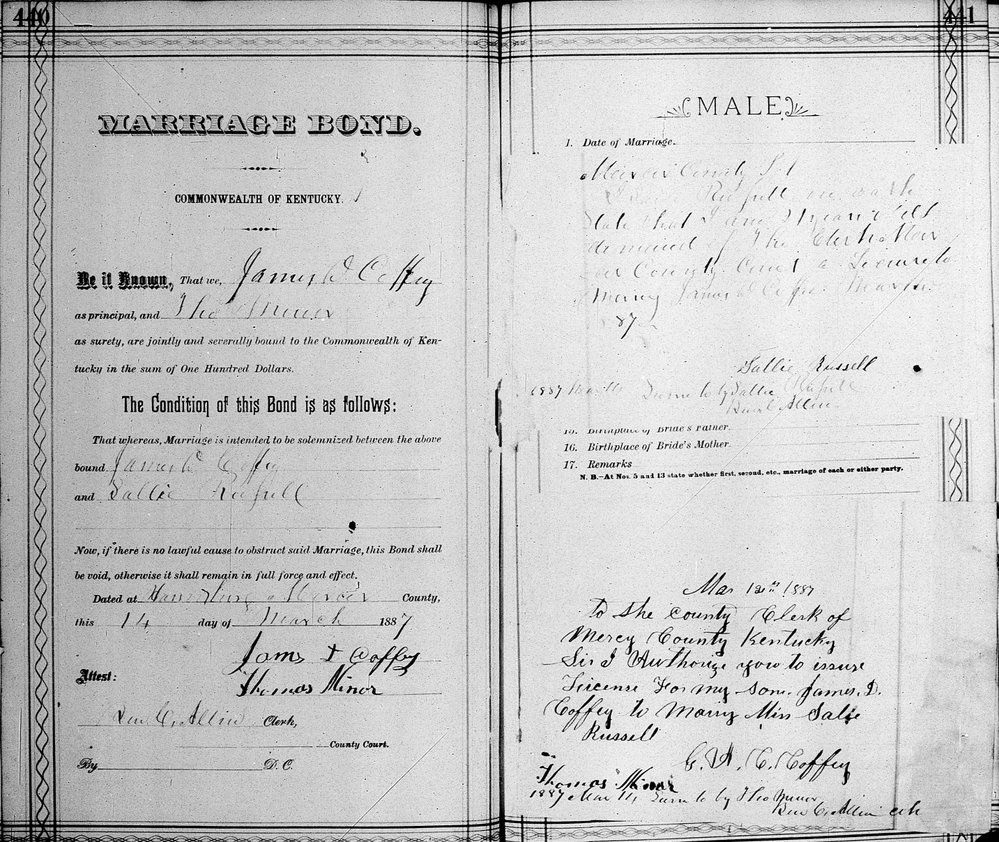 440
MARRIAGE BOND.
COMMONWEALTH OF KENTUCKY.
Be it Known, That we, James D Coffey
as principal, and Tho Minor
as surety, are jointly and severally bound to the Commonwealth of Ken-
tucky in the sum of One Hundred Dollars.
The Condition of this Bond is as follows:
That whereas, Marriage is intended to be solemnized between the above
bound James D Coffey
and Sallie Russell
Now, if there is no lawful cause to obstruct said Marriage, this Bond shall
be void, otherwise it shall remain in full force and effect.
Dated at Mercer County,
this 14 day of March 1887
James D Coffey
Attest: Thomas Minor
Ben C. Allin Clerk,
County Court.
By D. C.
441
MALE
1. Date of Marriage.
Mercer County Sct
I Russell on oath
state that I am 21 years old
demand of the Clerk of
County Court a License to
Marry James D Coffey March
1887
Sallie Russell
1887 Sworn to by Sallie Russell
Ben C Allin
15. Birthplace of Bride's Father.
16. Birthplace of Bride's Mother.
17. Remarks
N. B.—At Nos. 5 and 13 state whether first, second, etc., marriage of each or either party.
Mar 12th 1887
to the county Clerk of
Mercy County Kentucky
Sir I Authorize you to issure
License For my son James. D.
Coffey to Marry Miss Salie
Russell
G. W. C. Coffey
Thomas Minor
1887 Mar 14 Sworn to by Tho Minor
Ben C. Allin clk
441